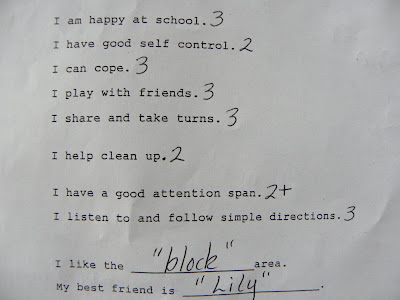 I am happy at school. 3
I have good self control. 2
I can cope. 3
I play with friends. 3
I share and take turns. 3
I help clean up. 2
I have a good attention span. 2+
I listen to and follow simple directions. 3
I like the "block" area.
My best friend is "Lily".